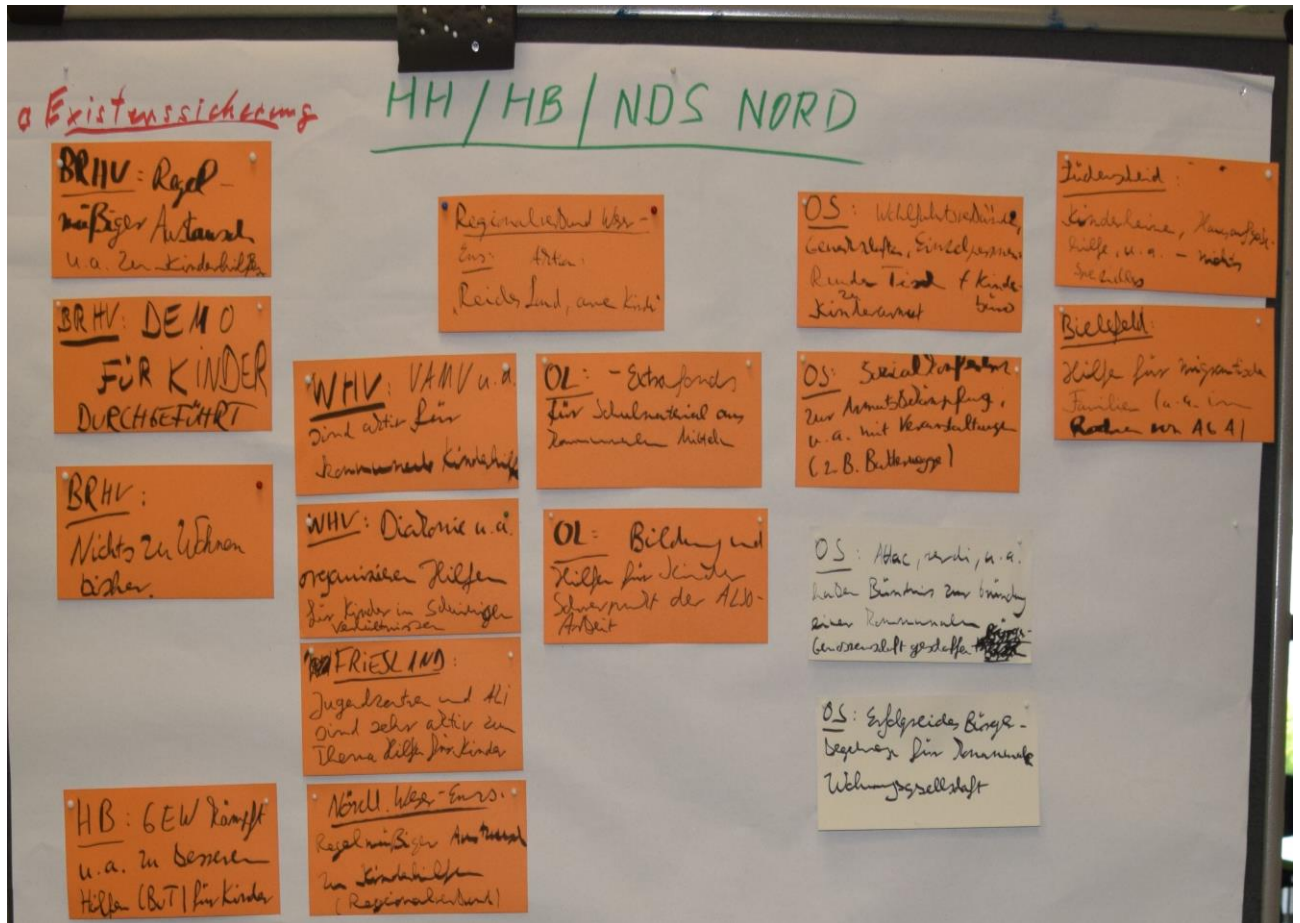 Existenssicherung
HH / HB / NDS NORD
BRHV: Regel-
mäßiger Austausch
u.a. zu Kinderhilfen
BRHV: DEMO
FÜR KINDER
DURCHGEFÜHRT
BRHV:
Nichts zu Wohnen
bisher.
HB: GEW kämpft
u.a. zu besseren
Hilfen (BuT) für Kinder
WHV: VAMV u.a.
sind aktiv für
kommunale Kinderhilfe
WHV: Diakonie u.a.
organisieren Hilfen
für Kinder in schwierigen
Verhältnissen
FRIESLAND:
Jugendzentren und ALI
sind sehr aktiv zum
Thema Hilfen für Kinder
Nördl. Weser-Ems:
Regelmäßiger Austausch
zu Kinderhilfen
(Regionalverbund)
Regionalverbund Weser-
Ems: Aktion:
"Reiches Land, arme Kinder"
OL: - Extrafonds
für Schulmaterial aus
kommunalen Mitteln
OL: Bildung und
Hilfen für Kinder
Schwerpunkt der ALSO-
Arbeit
OS: Wohlfahrtsverbände,
Gewerkschaften, Einzelpersonen
Runder Tisch + Kinder-
zu büro
Kinderarmut
OS: Sozialkonferenz
zur Armutsbekämpfung,
u.a. mit Veranstaltungen
(z.B. Butterwegge)
OS: Attac, verdi, u.a.
haben Bündnis zur Gründung
einer kommunalen
Genossenschaft geschaffen
OS: Erfolgreiches Bürger-
begehren für kommunale
Wohnungsgesellschaft
Lüdenscheid:
Kinderheime,
hilfe, u.a. - nichts
Bielefeld:
Hilfen für migrantische
Familien (u.a. im